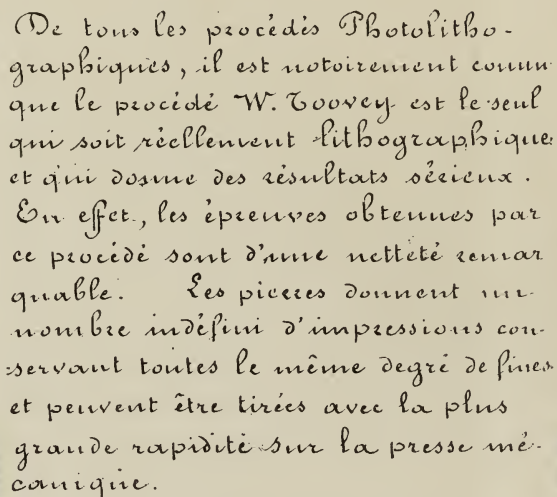 De tous les procédés Photolitho-
graphiques, il est notoirement connu
que le procédé W. Toovey est le seul
qui soit réellement lithographique
et qui donne des résultats sérieux.
En effet, les épreuves obtenues par
ce procédé sont d'une netteté remar
quable. Les pierres donnent un
nombre indéfini d'impressions con-
servant toutes le même degré de fines-
et peuvent être tirées avec la plus
grande rapidité sur la presse mé-
canique.